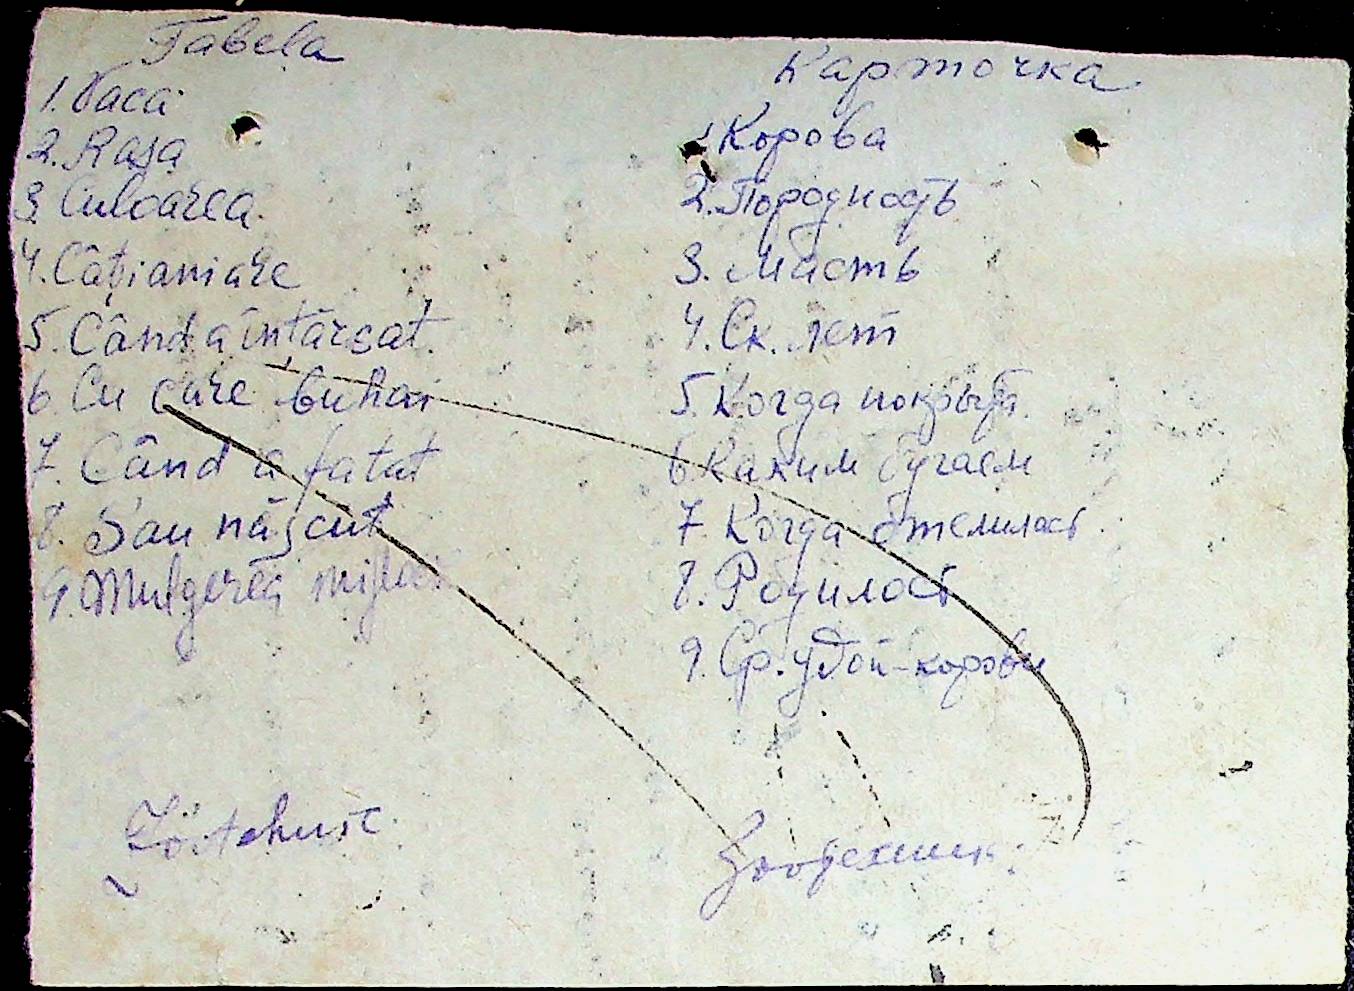 Tabela
1. Vaca
2. Rasa
3. Culoarea
4. Câți ani are
5. Când a întărsat.
6. Cu care buhai
7. Când a fatat
8. S'au născut
9. Mulgerea
Zootehnic
Карточка
1. Корова
2. Породность
3. Масть
4. Ск. лет
5. Когда покрыта.
6. Каким бугаем
7. Когда отелилась.
8. Родилось
9. Ср. удой-коровы
Зоотехник